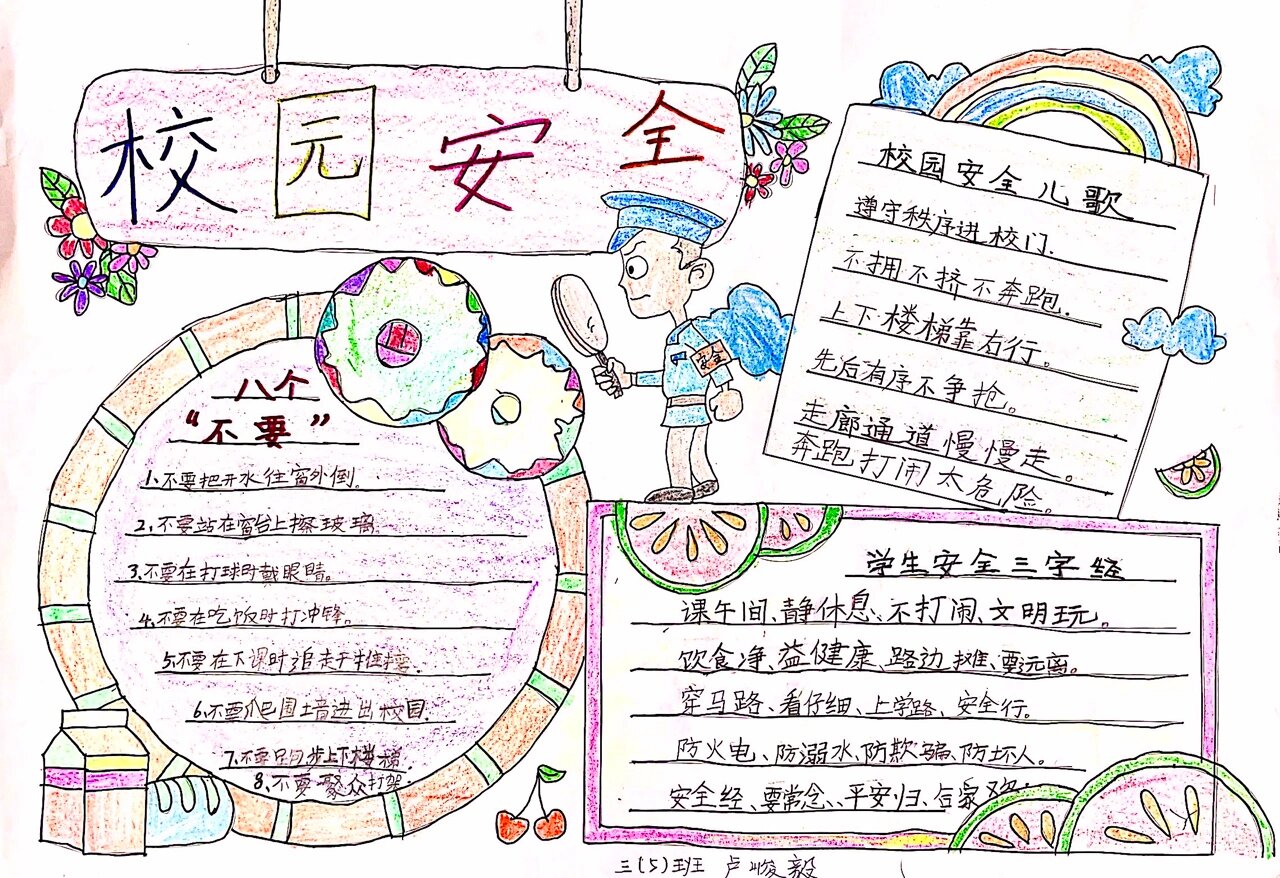 校园安全
安全
八个
“不要”
1、不要把开水往窗外倒。
2、不要站在窗台上擦玻璃.
3、不要在打球时戴眼睛。
4、不要在吃饭时打冲锋。
5不要在下课时追走
6、不要爬围墙进出校园.
7、不要跑步上下楼梯.
8、不要聚众打架
校园安全儿歌
遵守秩序进校门.
不拥不挤不奔跑.
上下楼梯靠右行。
先后有序不争抢。
走廊通道慢慢走。
奔跑打闹太危险。
学生安全三字经
课午间、静休息、不打闹、文明玩。
饮食净、益健康、路边摊、要远离。
穿马路、看仔细、上学路、安全行。
防火电、防溺水、防欺骗、防坏人。
安全经、要常念、平安归、合家欢
三(5)班 卢峻毅